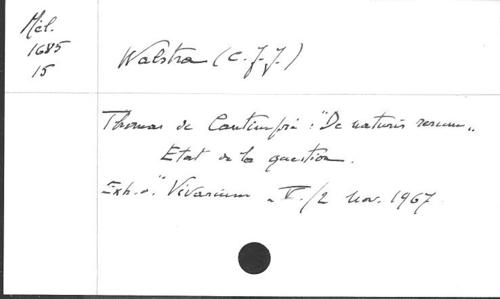 Mél.
1685
15
Walstra (C. J. J.)
Thomas de Cantimpré : "De naturis rerum"
Etat de la question.
Extr. de "Vivarium" V./2 nov. 1967